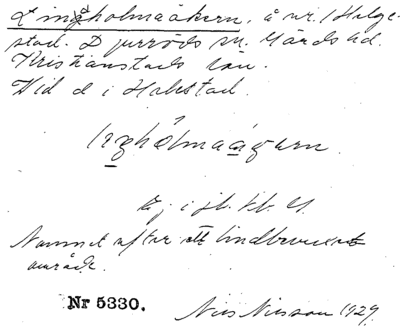 Lingholmaåkern, å nr. 1 Helge-
stad. Djurröds sn. Gärds hd.
Kristianstads län.
Vid d i Holestad.
Ej i jb. kb. U.
Namnet efter ett lindbevuxet
område.
Nr 5330. Nils Nilsson 1929.